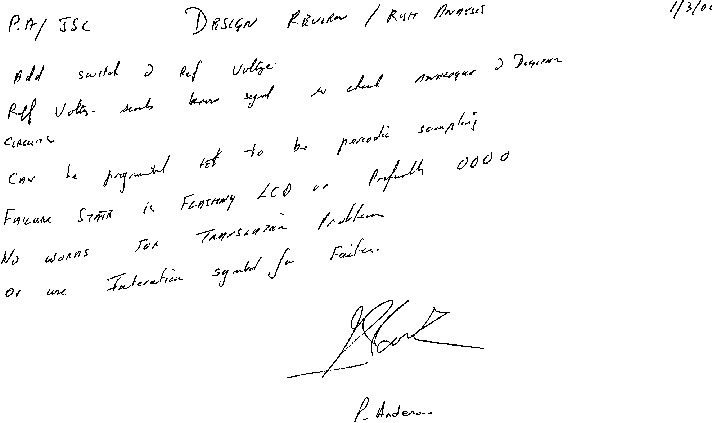 P.A/ JSC DESIGN REVIEW / RISK ANALYSIS 1/3/0
Add switch & Ref Voltage
Reff Voltage sends known signal to check ANALOGUE & DIGITAL
CIRCUITS
CAN be programmed to be periodic sampling
FAILURE STATE is FLASHING LCD or Preferably 0000
NO WORDS FOR TRANSLATION Problem
Or use symbol for Failure.
P. Anderson